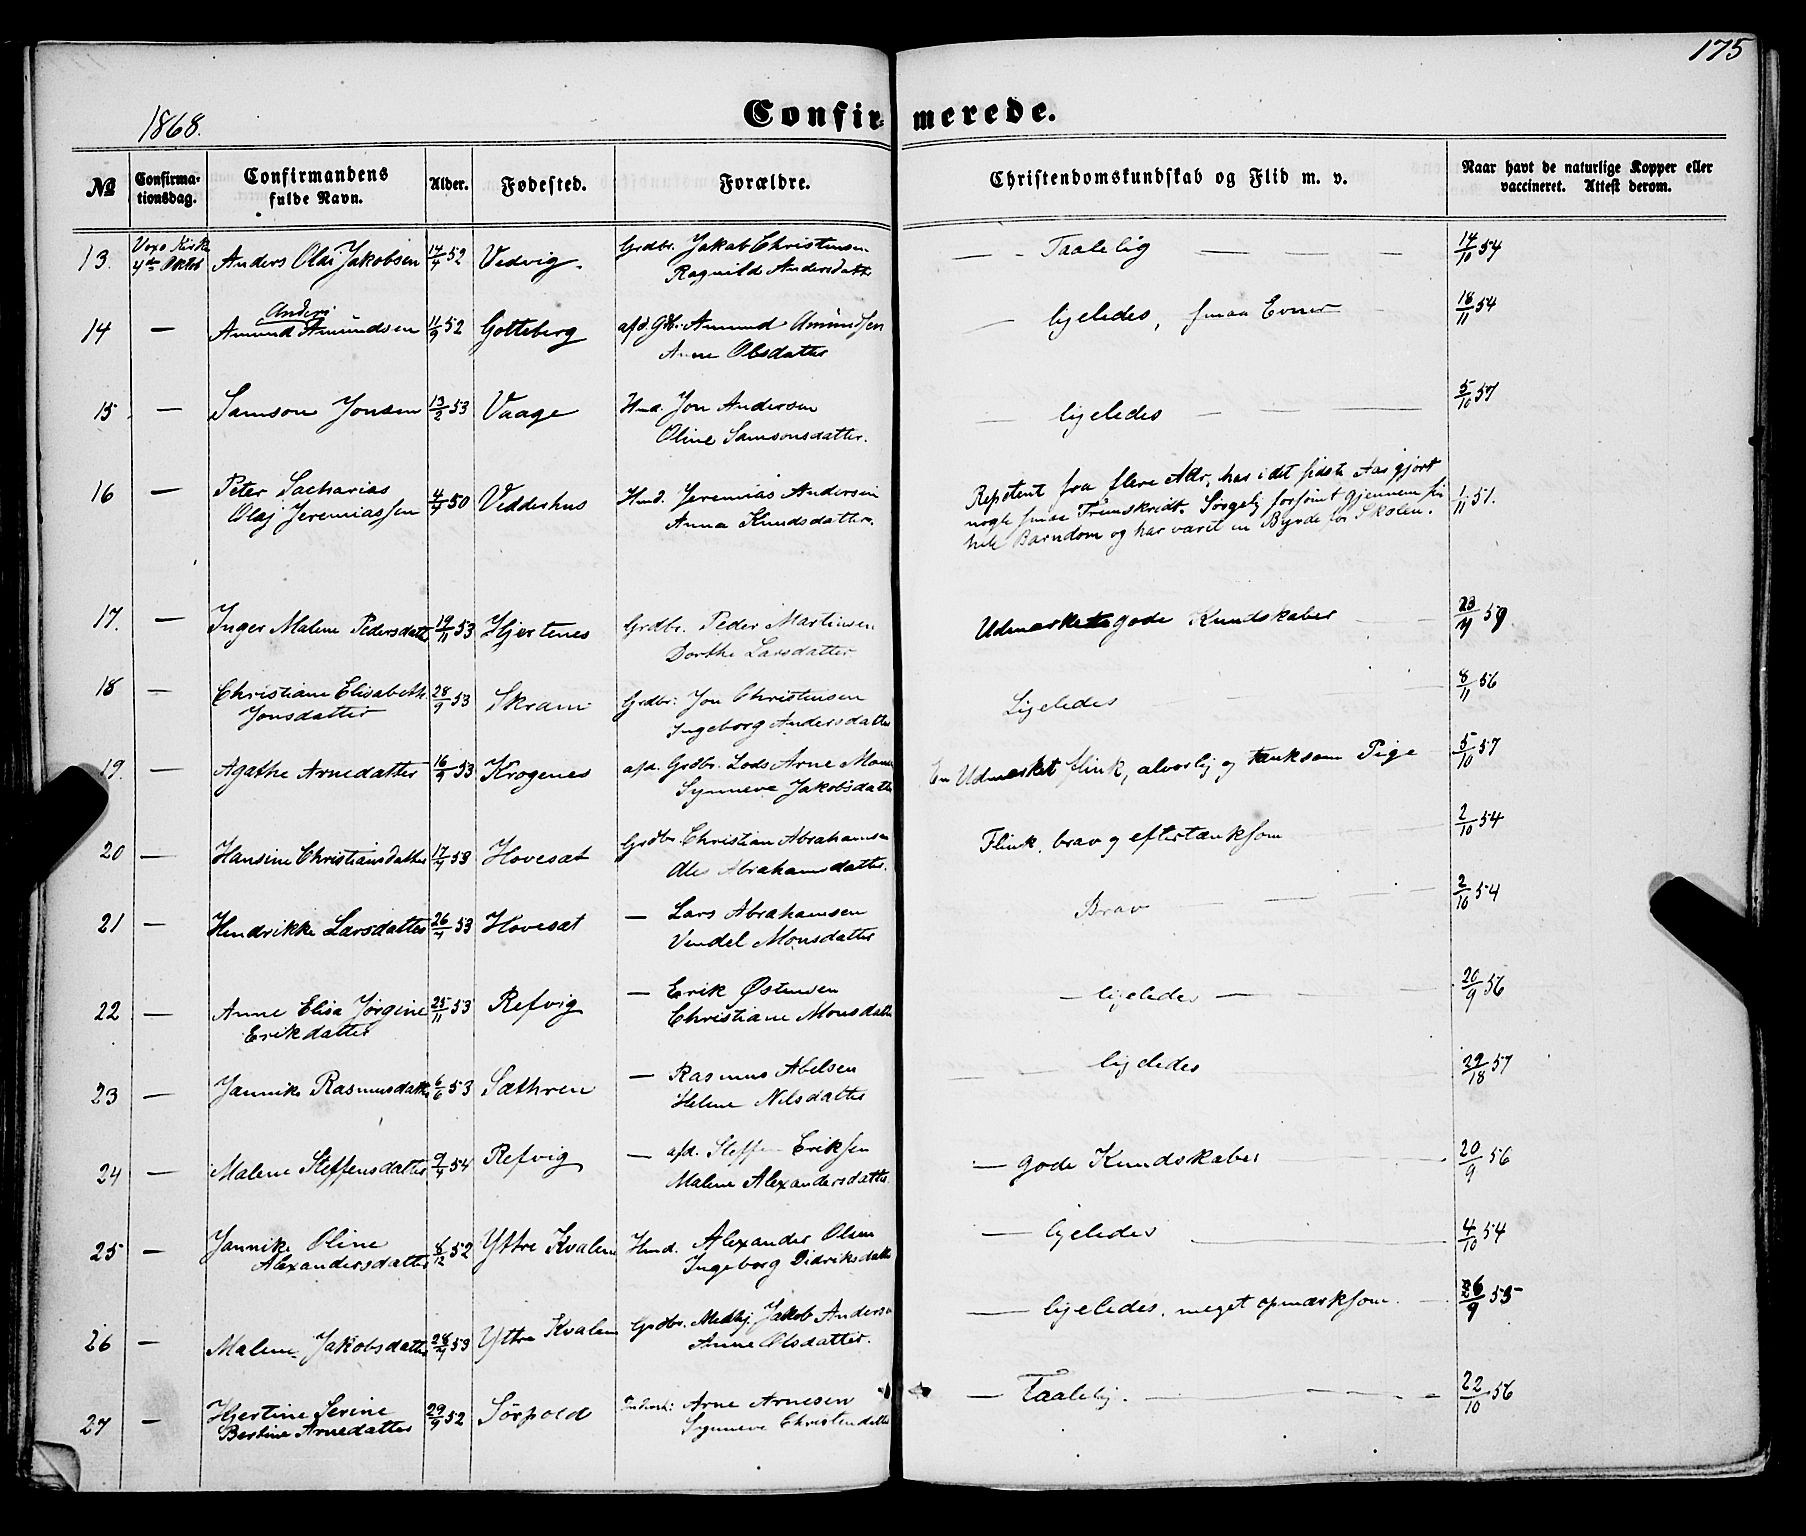 175
1868.
Confirmerede.
No Confirmationsdag. Confirmandens fulde Navn. Alder. Fødested. Forældre. Christendomskundskab og Flid m. v. Naar havt de naturlige Kopper eller vaccineret. Attest derom.
13. Kirke Anders Olai Jakobsen 52 Vedvig. Grdbr. Jakob Christensen Taalelig 14/10 54
4de Oktob Ragnilde Andersdatter
Anders
14 — Amund Amundsen 11/9 52 Gotteberg afd. Amund Amundsen ligeledes, smaa Evner 18/11 54
Anne Olsdatter
15 — Samson Jonsen 13/2 53 Vaage Hmd. Jon Andersen ligeledes 5/10 57
Oline Samsonsdatter.
16 — Peter Sacharias 50 Vedderhus Hmd. Jeremias Andersen Repetent fra flere Aar, har i det sidste Aar gjort 1/11 51.
Olaj Jeremiassen Anna Knudsdatter. nogle smaa Fremskridt. Sørgelig forsømt gjennem sin
hele Barndom og har været en Byrde for Skolen.
17. — Inger Malene Pedersdatter 19/11 53 Hjertenes Grdbr. Peder Martinsen Udmærkede gode Kundskaber 59
Dorthe Larsdatter
18 — Christiane Elisabeth 28/9 53 Skram Grdbr: Jon Christensen Ligeledes 8/11 56
Jonsdatter Ingeborg Andersdatter
19. — Agathe Arnedatter 53 Krogenes afd. Grdbr. Lods Arne En Udmærket flink, alvorlig og tænksom Pige 5/10 57
Synneve Jakobsdatter
20 — Hansine Christiansdatter 53 Hovesæt Grdbr Christian Abrahamsen Flink, brav og eftertænksom 2/10 54
Abrahamsdatter.
21 — Hendrikke Larsdatter 53 Hovesæt — Lars Abrahamsen Brav 2/10 54
Vendel Monsdatter
22 — Anne Elisa Jørgine 25/11 53 Refvig — Erik Østensen — ligeledes — 20/9 56
Erikdatter Christiane Monsdatter
23 — Jannike Rasmusdatter 6/6 53 Sæthren — Rasmus Abelsen ligeledes 57
Helene Nilsdatter
24 — Malene Steffensdatter 54 Refvig — afd. Steffen Eriksen — gode Kundskaber 20/9 56
Malene Alexandersdatter
25 — Jannike Oline 8/12 52 Yttre Kvalen Hmd. Alexander Olsen — ligeledes 4/10 54
Alexandersdatter Ingeborg Didriksdatter
26 — Malene Jakobsdatter 53 Yttre Kvalen Grdbr. Medhj. Jakob Andersen — ligeledes, meget opmærksom. 26/9 55
Anne Olsdatter.
27 — Hjertine Serine 29/9 52 Sørpold Arne Arnesen — Taalelig. 22/10 56
Bertine Arnedatter Synneve Christendatter